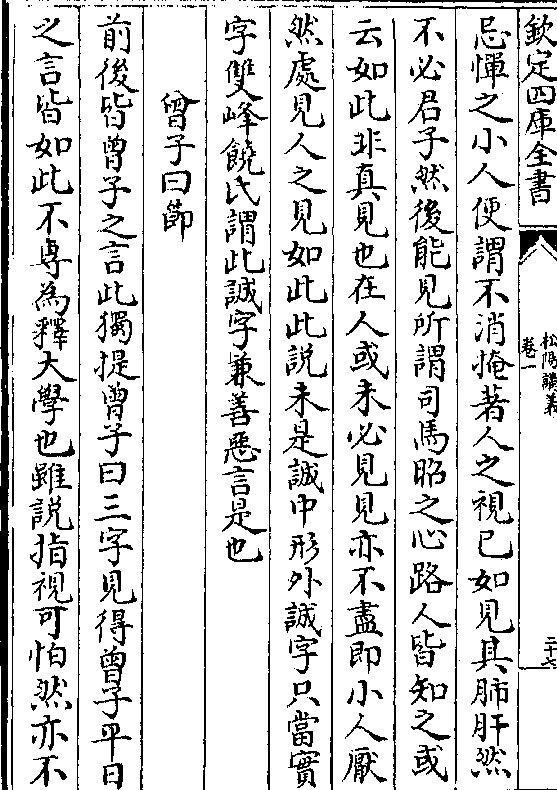 欽定四庫全書
松陽講義
卷一
二十七
忌憚之小人便謂不消掩著人之視已如見其肺肝然
不必君子然後能見所謂司馬昭之心路人皆知之或
云如此非真見也在人或未必見見亦不盡即小人厭
然處見人之見如此此說未是誠中形外誠字只當實
字雙峰饒氏謂此誠字兼善惡言是也
曾子曰節
前後皆曾子之言此獨提曾子曰三字見得曾子平日
之言皆如此不專為釋大學也雖說指視可怕然亦不